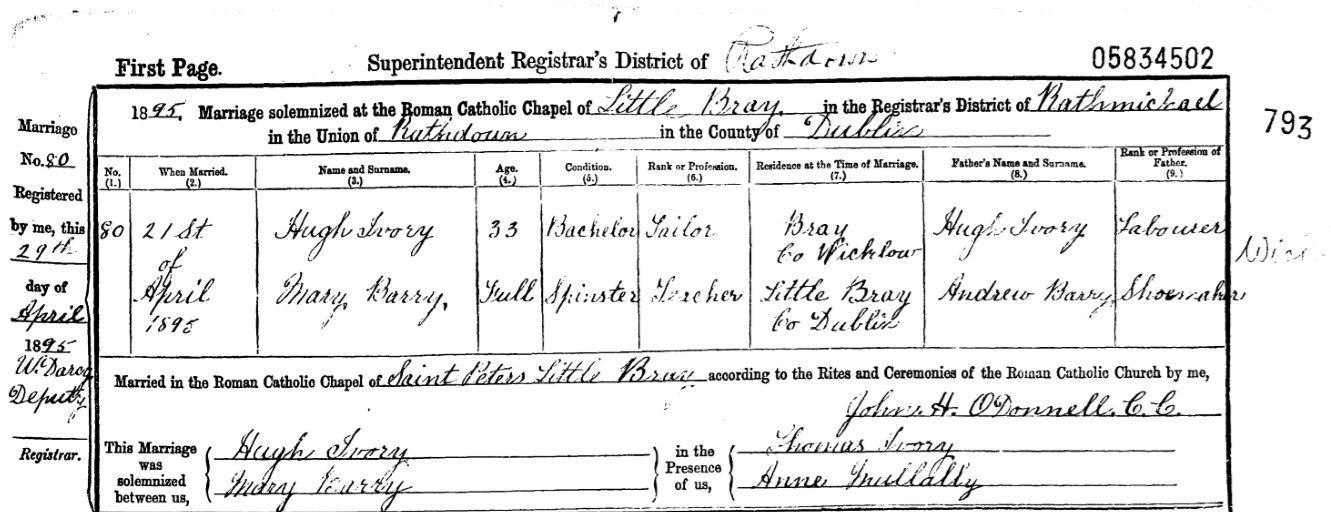 First Page. Superintendent Registrar's District of Rathdown 05834502
1895. Marriage solemnized at the Roman Catholic Chapel of Little Bray, in the Registrar's District of Rathmichael
in the Union of Rathdown in the County of Dublin
793
Marriage
No. 80
Registered
by me, this
29th
day of
April
1895
W. Darcy
Deputy
Registrar.
No. (1.) When Married. (2.) Name and Surname. (3.) Age. (4.) Condition. (5.) Rank or Profession. (6.) Residence at the Time of Marriage. (7.) Father's Name and Surname. (8.) Rank or Profession of Father. (9.)
80 21st Hugh Ivory 33 Bachelor Tailor Bray Hugh Ivory Labourer
of Co Wicklow
April Mary Barry, Full Spinster Teacher Little Bray Andrew Barry, Shoemaker
1895 Co Dublin
Married in the Roman Catholic Chapel of Saint Peters Little Bray according to the Rites and Ceremonies of the Roman Catholic Church by me,
John H. O'Donnell. C.C.
This Marriage was solemnized between us, Hugh Ivory in the Presence of us, Thomas Ivory
Mary Barry Anne Mullally